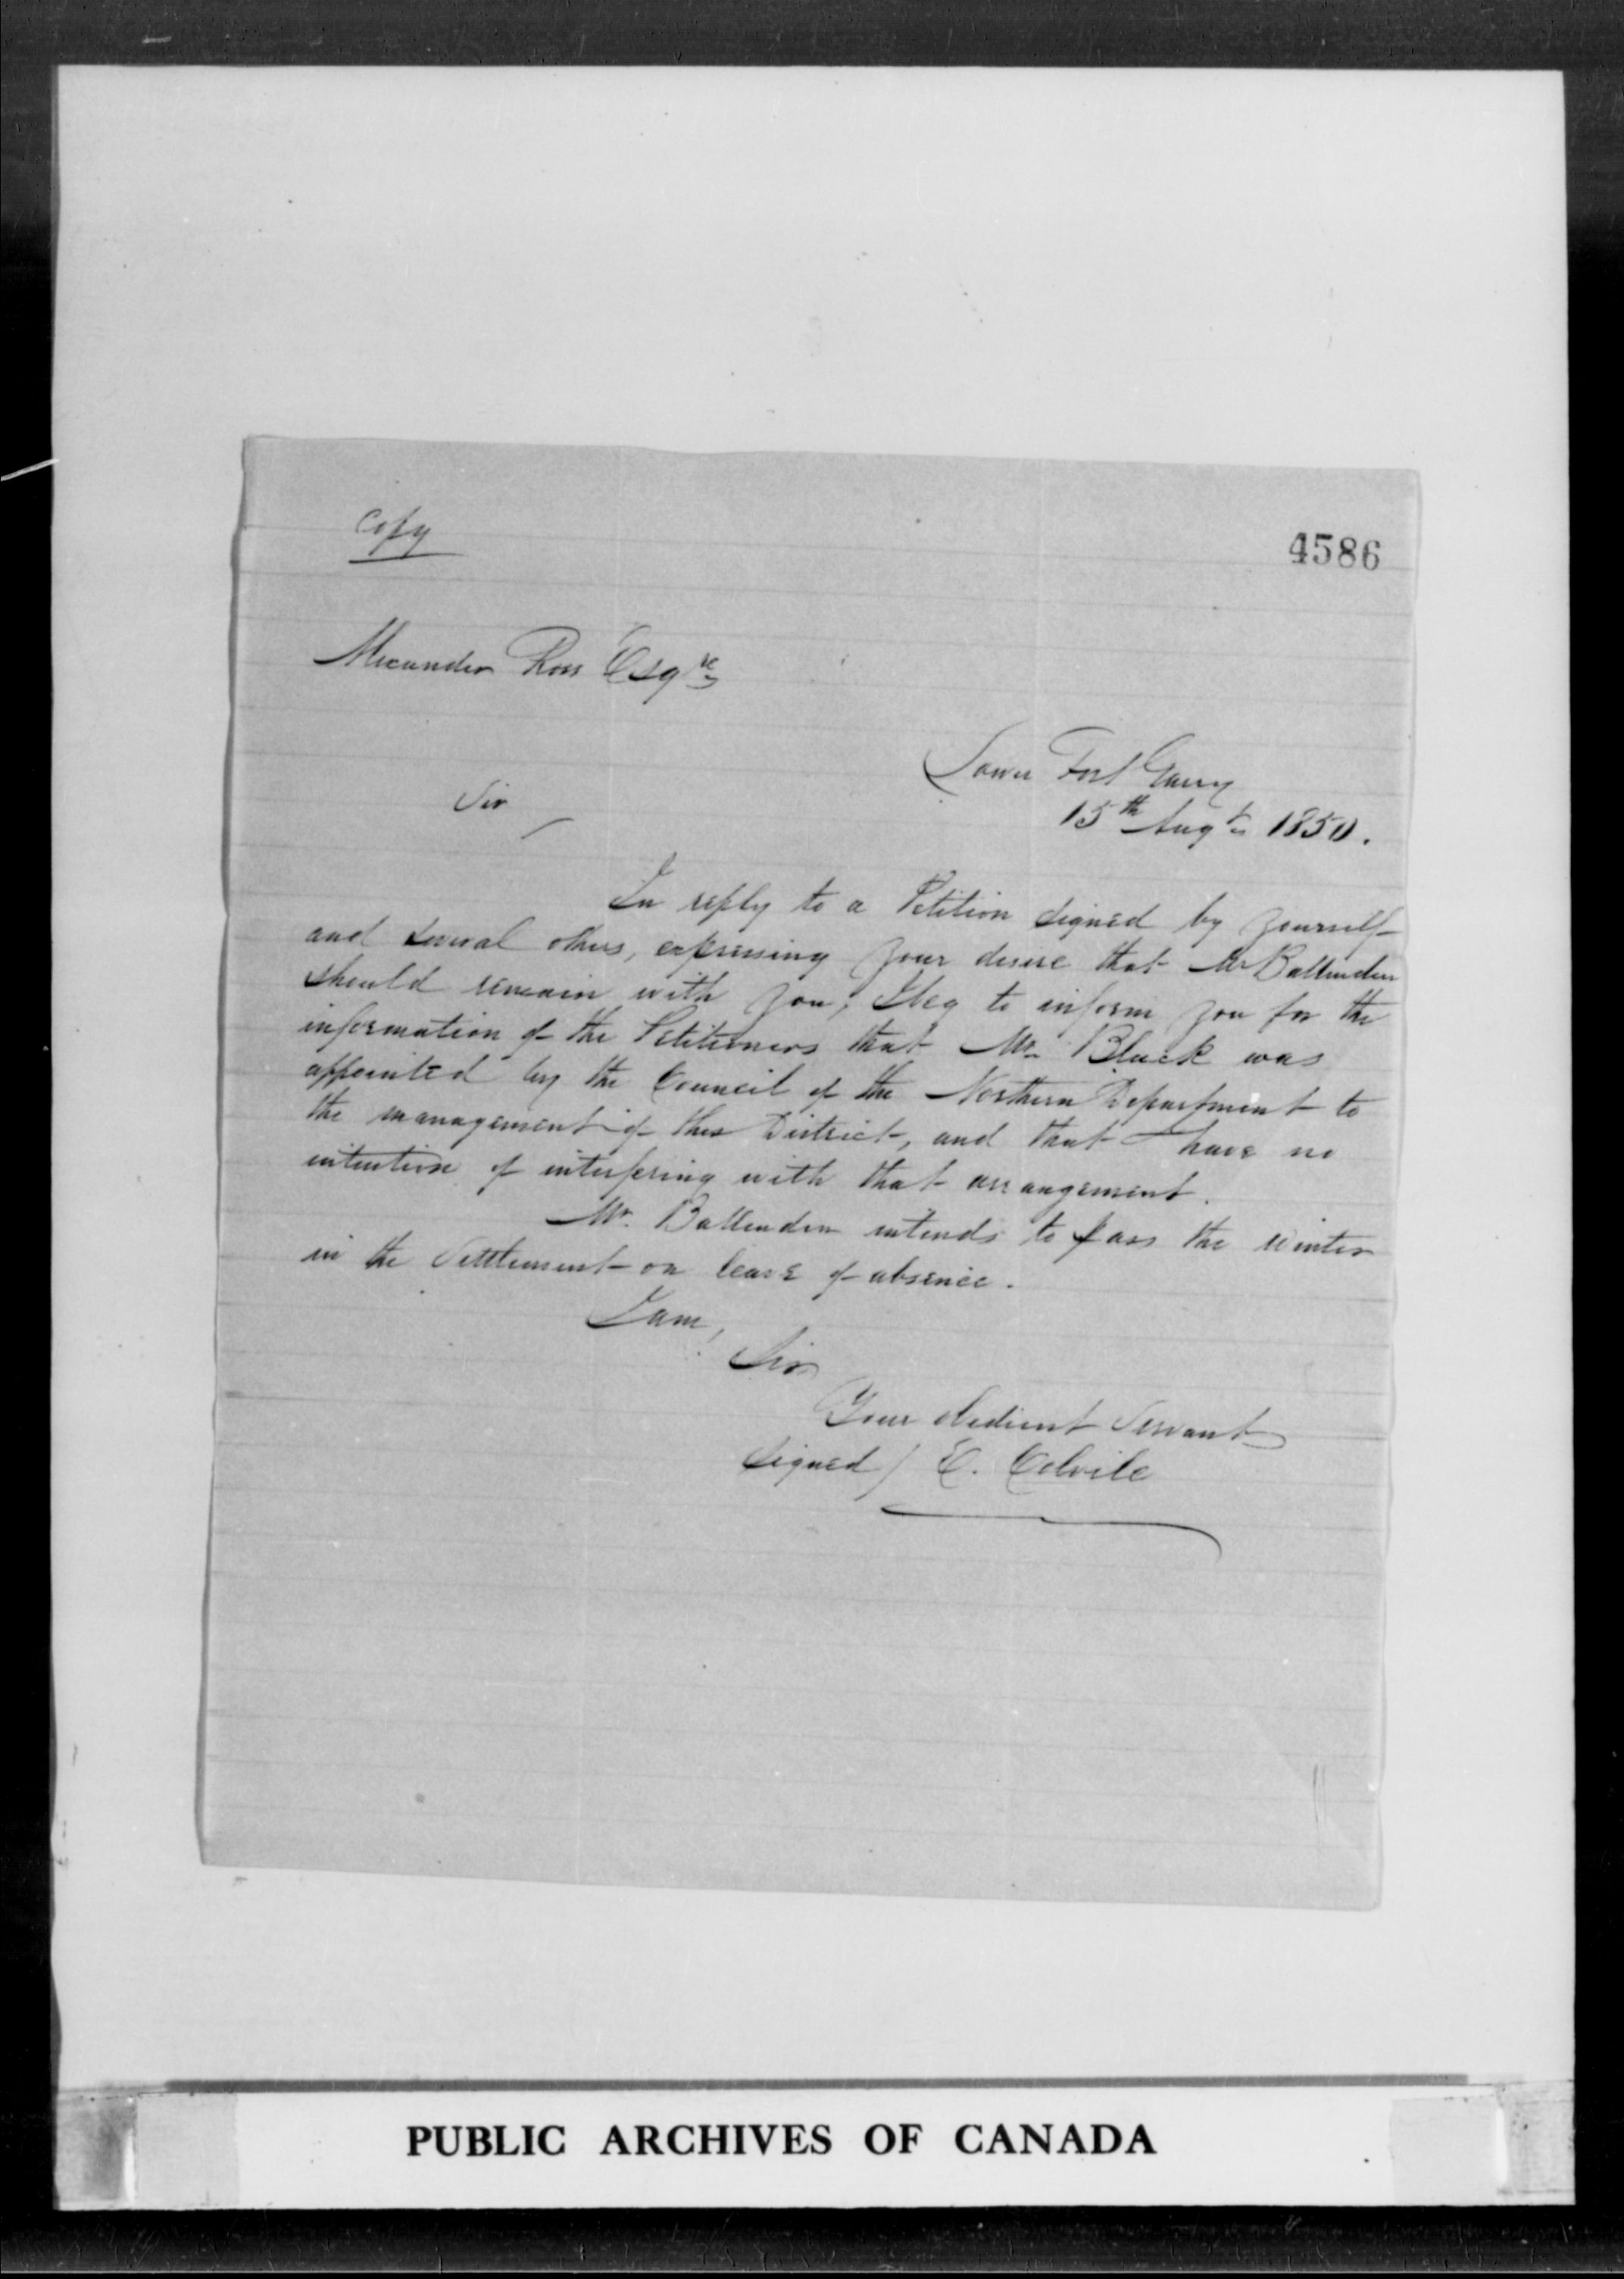 Copy
4586
Alexander Ross Esqre
Lower Fort Garry
15th Augt 1850.
Sir
In reply to a Petition signed by yourself
and several others, expressing your desire that Mr Ballenden
should remain with you, I beg to inform you for the
information of the Petitioners that Mr. Black was
appointed by the Council of the Northern Department to
the management of this District, and that I have no
intention of interfering with that arrangement.
Mr. Ballenden intends to pass the winter
in the Settlement on leave of absence.
I am,
Sir
Your obedient Servant
signed / E. Colvile
PUBLIC ARCHIVES OF CANADA